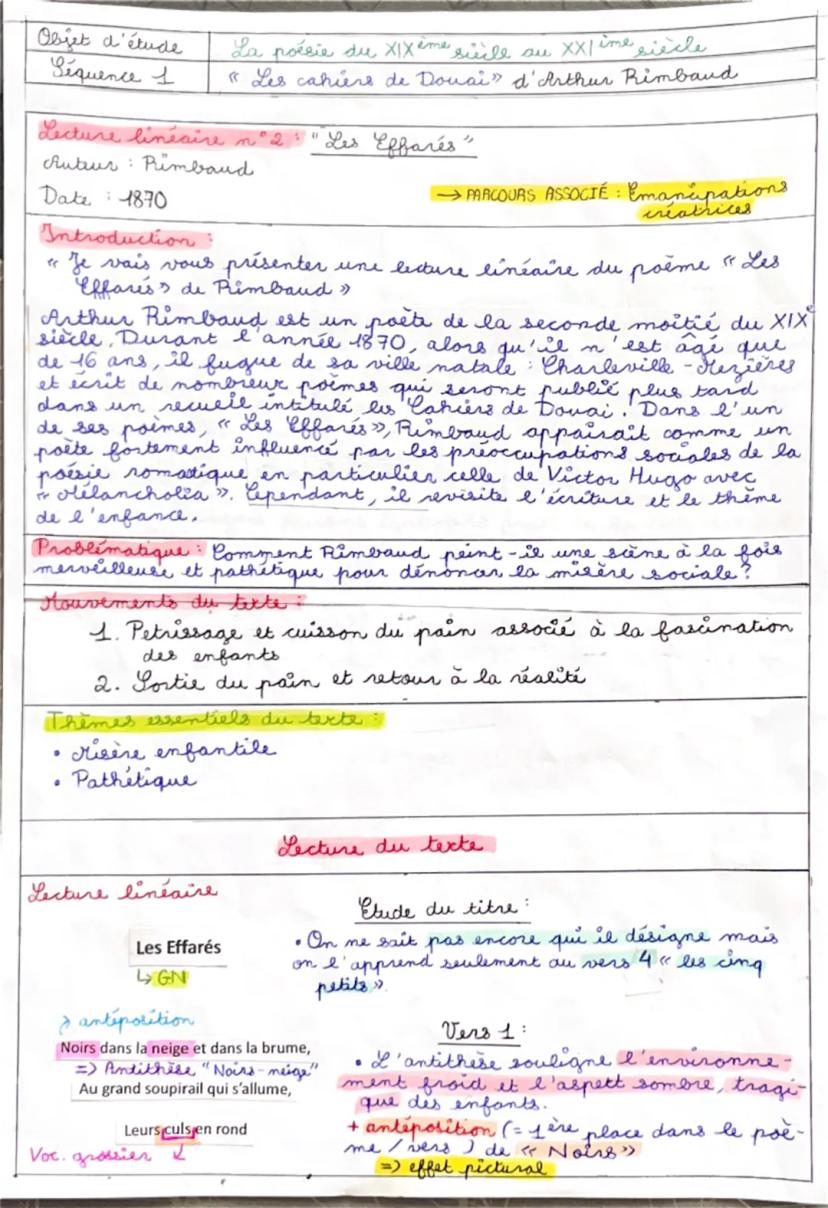 Objet d'étude
La poésie du XIXème siècle au XXIème siècle
Séquence 1
« Les cahiers de Douai» d'Arthur Rimbaud
Lecture linéaire n°2 : "Les Effarés"
Auteur : Rimbaud
Date : 1870
→ PARCOURS ASSOCIÉ : Emancipations
créatrices
Introduction :
« Je vais vous présenter une lecture linéaire du poème « Les
Effarés» de Rimbaud »
Arthur Rimbaud est un poète de la seconde moitié du XIXe
siècle. Durant l'année 1870, alors qu'il n'est âgé que
de 16 ans, il fugue de sa ville natale : Charleville-Mezières
et écrit de nombreux poèmes qui seront publié plus tard
dans un recueil intitulé les Cahiers de Douai. Dans l'un
de ses poèmes, « Les Effarés», Rimbaud apparait comme un
poète fortement influencé par les préoccupations sociales de la
poésie romatique en particulier celle de Victor Hugo avec
« Mélancholia ». Cependant, il revisite l'écriture et le thème
de l'enfance.
Problématique : Comment Rimbaud peint-il une scène à la fois
merveilleuse et pathétique pour dénoncer la misère sociale ?
Mouvements du texte :
1. Petrissage et cuisson du pain associé à la fascination
des enfants
2. Sortie du pain et retour à la réalité
Thèmes essentiels du texte :
• Misère enfantile
• Pathétique
Lecture du texte
Lecture linéaire
Les Effarés
↳ GN
→ antéposition
Noirs dans la neige et dans la brume,
=> Antithèse "Noirs-neige"
Au grand soupirail qui s'allume,
Leurs culs en rond
Voc. grossier
Etude du titre :
• On ne sait pas encore qui il désigne mais
on l'apprend seulement au vers 4 « les cinq
petits ».
Vers 1 :
• L'antithèse souligne l'environne-
ment froid et l'aspett sombre, tragi-
que des enfants.
+ antéposition (= 1ère place dans le poè-
me / vers ) de « Noirs»
=> effet pictural